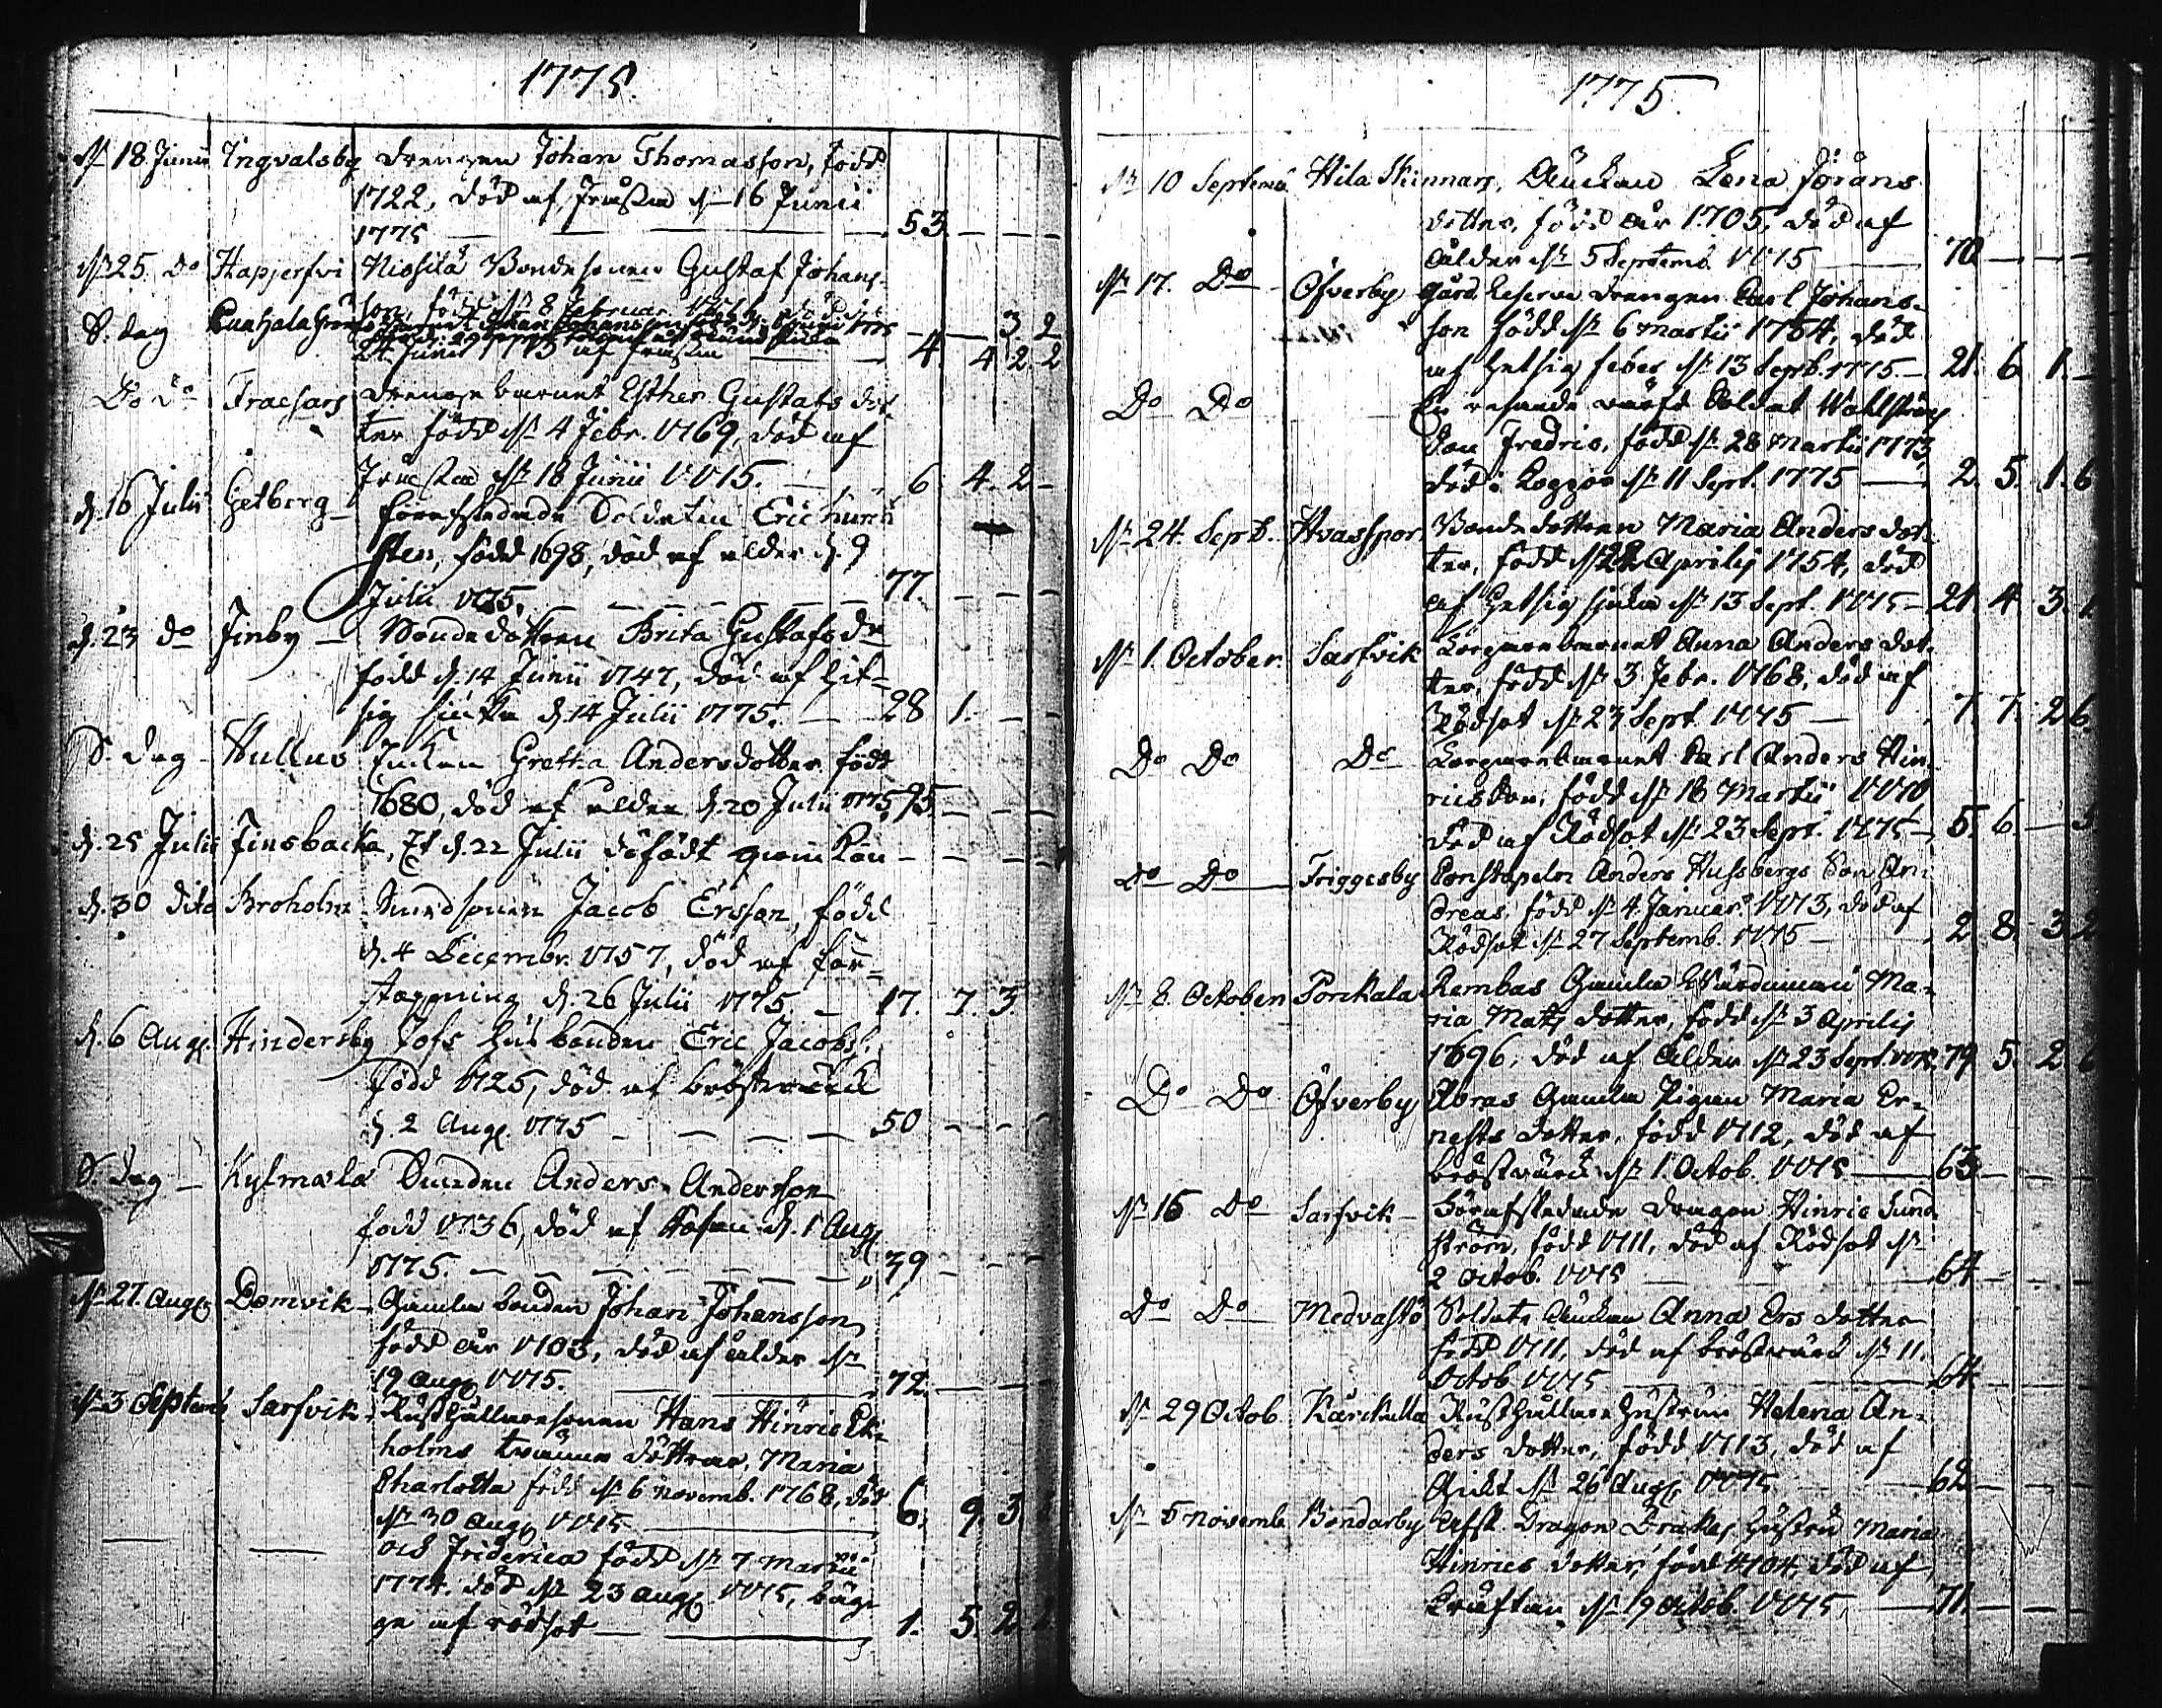 1775.
d. 18. Junii Ingvalsby Drengen Johan Thomasson, född
1722, död af d. 16 Junii
1775 53.
d. 25. Do Gustaf Johans-
son, född d. 8 Februar.
S. dag 3. 2
Junii 1775 af 4. 4 2 2
Do Do Fraesars Drenge barnet Esther Gustafs dot
ter född d. 4 Febr. 1769, död af
d. 18 Junii 1775. 6 4. 2
d. 16 Julii Getberg Soldaten Eric
sten, född 1698, död af ålder d. 9
Julii 1775. 77.
d. 23 do Finby Bondedottren Brita Gustafsdr
född d. 14 Junii 1747, död af hit-
sig d. 14 Julii 1775. 28 1.
S. dag Hullus Enkan Gretha Andersdotter född
1680, död af ålder d. 20 Julii 1775. 95.
d. 25 Julii Finsbacka, Et d. 22 Julii döfödt qwin Kön
d. 30 dito Broholm Smedsonen Jacob Ersson, född
d. 4 Decembr. 1757, död af för-
stoppning d. 26 Julii 1775 17. 7. 3.
d. 6 Aug. Hindersby Jofs husbonden Eric Jacobs.
född 1725, död af bröstwärck
d. 2 Aug. 1775 50
S. dag Kylmala Smeden Anders Andersson
född 1736, död af d. 1 Aug.
1775. 39
d. 27. Aug. Domvik Gamla bonden Johan Johansson
född år 1703, död af ålder d.
19 Aug. 1775. 72.
d. 3 Septemb Sarfvik Rusthållaresonen Hans Hinric Ek-
holms twänne döttrar, Maria
Charlotta född d. 6 Novemb. 1768, död
d. 30 Aug. 1775 6. 9. 3
och Friderica född d. 7 Martii
1774. död d. 23 Aug. 1775, bäg-
ge af rödsot 1. 5. 2
1775.
d. 10 Septemb Hila Skinnars, Änckan Lena Jörans
dotter, född år 1705, död af
ålder d. 5 Septemb. 1775 70
d. 17. Do Öfverby gård. Reserve drengen Carl Johans-
son född d. 6 Martii 1754, död
af hetsig feber d. 13 Sept. 1775 21. 6. 1.
Do Do En resande Soldat Wahlströms
Son Fredric, född d. 28 Martii 1773,
död i Koppor d. 11 Sept. 1775 2. 5. 1. 6
d. 24. Sept. Hvasspor Bondedottren Maria Anders dot-
ter, född d. 22 Aprilis 1754, död
af hetsig sjuka d. 13 Sept. 1775 21. 4. 3. 1
d. 1. October. Sarfvik barnet Anna Anders dot-
ter, född d. 3 Febr. 1768, död af
Rödsot d. 23 Sept. 1775 7. 7. 2 6.
Do Do Do barnet Karl Anders Hin
ricsson, född d. 18 Martii 1770
död af Rödsot d. 23 Sept. 1775 5. 6. 5
Do Do Friggesby Constapeln Anders Hussbergs Son An-
dreas, född d. 4 Januar. 1773, död af
Rödsot d. 27 Septemb. 1775 2 8. 3 2
d. 8. October Porckala Rembas Gamla Wärdinna Ma-
ria Mats dotter, född d. 3 Aprilis
1696, död af ålder d. 23 Sept. 1775. 79 5. 2 6
Do Do Öfverby Abras Gamla Pigan Maria Er-
nests dotter, född 1712, död af
bröstwärck d. 1. Octob. 1775 63
d. 15 Do Sarfvik Dragon Hinric Sund
ström, född 1711, död af Rödsot d.
2 Octob. 1775 64
Do Do Medvastö Soldats Änckan Anna Ers dotter
född 1711, död af bröstwärck d. 11.
Octob 1775 64
d. 29 Octob. Kärckulla Rusthållare Hustrun Helena An-
ders dotter, född 1713, död af
Gickt d. 26 Aug. 1775 62
d. 5 Novemb. Bondarby Afsk. Dragon Hustru Maria
Hinrics dotter, född 1704, död af
Kräftan d. 19 Octob. 1775, 71